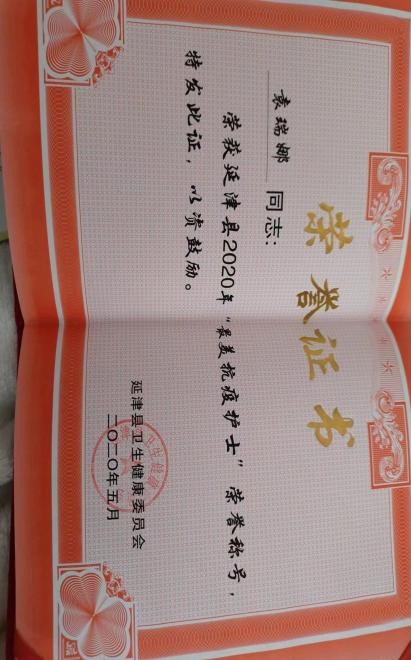 荣誉证书
袁瑞娜 同志:
荣获延津县2020年“最美抗疫护士”荣誉称号,
特发此证,以资鼓励。
延津县卫生健康委员会
二〇二〇年五月